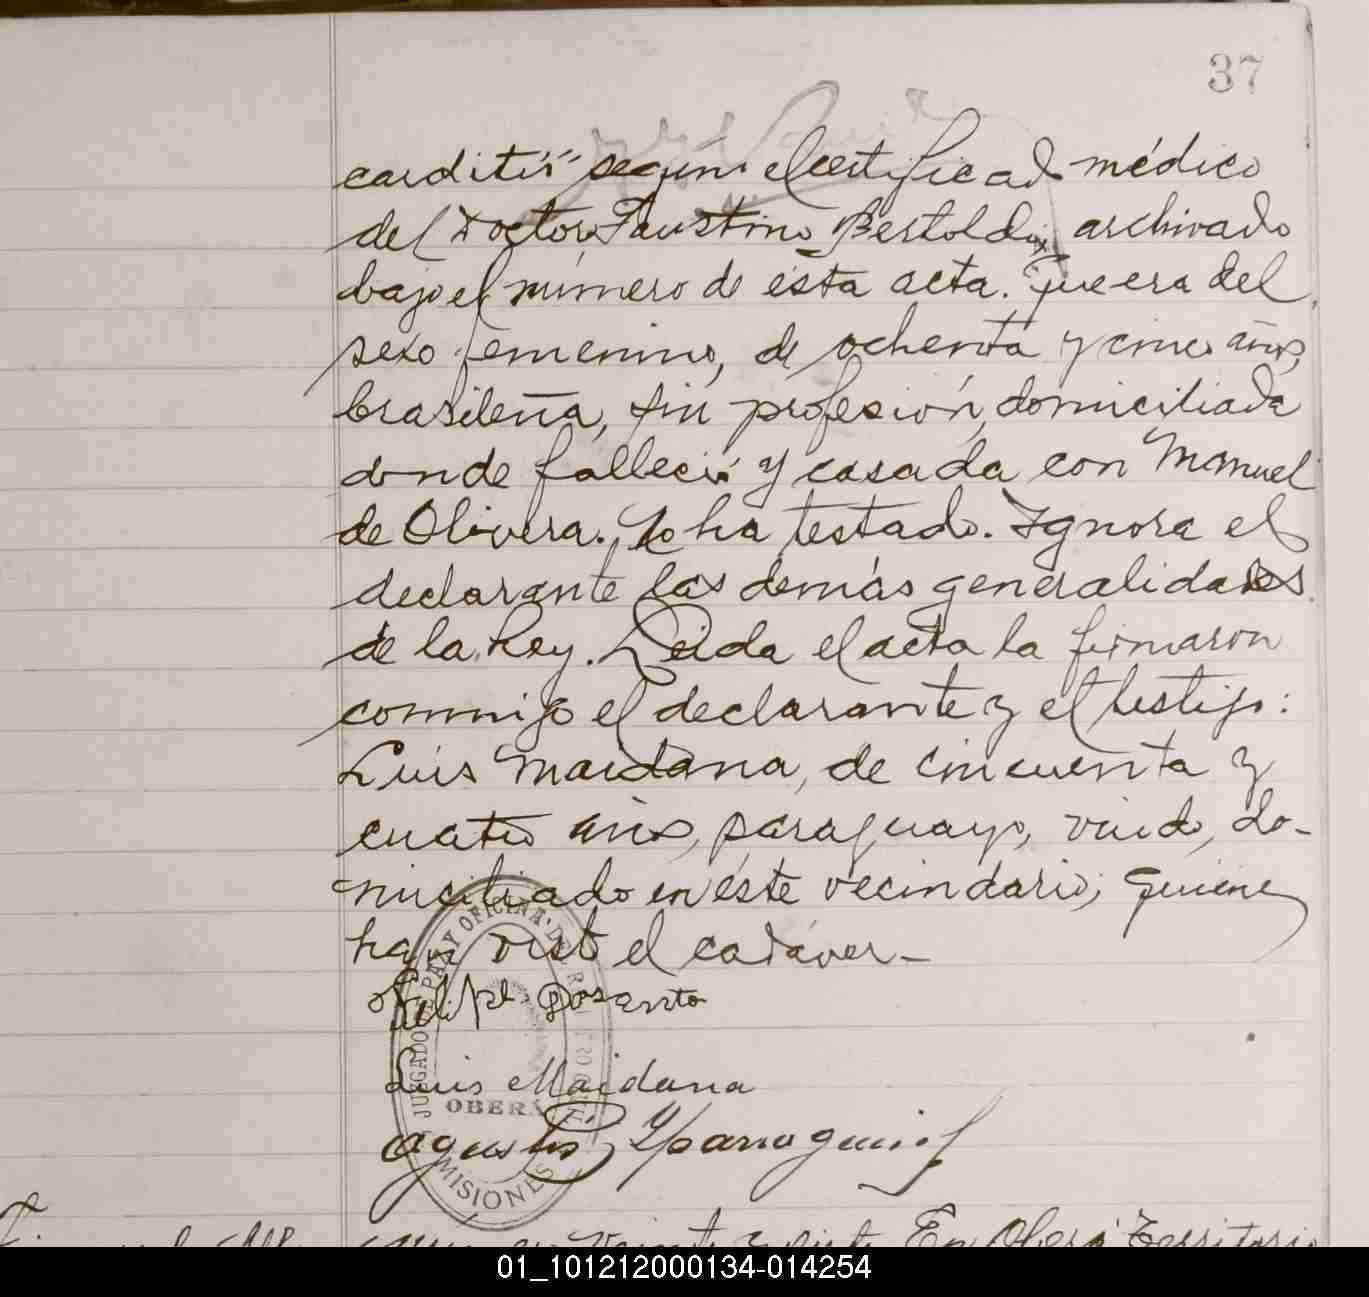 37
carditis" según el certificado médico
del Doctor Faustino Bertoldi, archivado
bajo el número de ésta acta. Que era del
sexo femenino, de ochenta y cinco años,
brasileña, sin profesión, domiciliada
donde falleció y casada con Manuel
de Olivera. No ha testado. Ignora el
declarante las demás generalidades
de la Ley. Leida el acta la firmaron
conmigo el declarante y el testigo:
Luis Maidana, de cincuenta y
cuatro años, paraguayo, viudo, do-
miciliado en éste vecindario; quienes
han visto el cadáver.-
Felipe Dosanto
Luis Maidana
Agustín Yparraguirre
JUZGADO DE PAZ Y OFICINA DEL REGISTRO CIVIL
OBERÁ
MISIONES
En Oberá Territorio
01_101212000134-014254